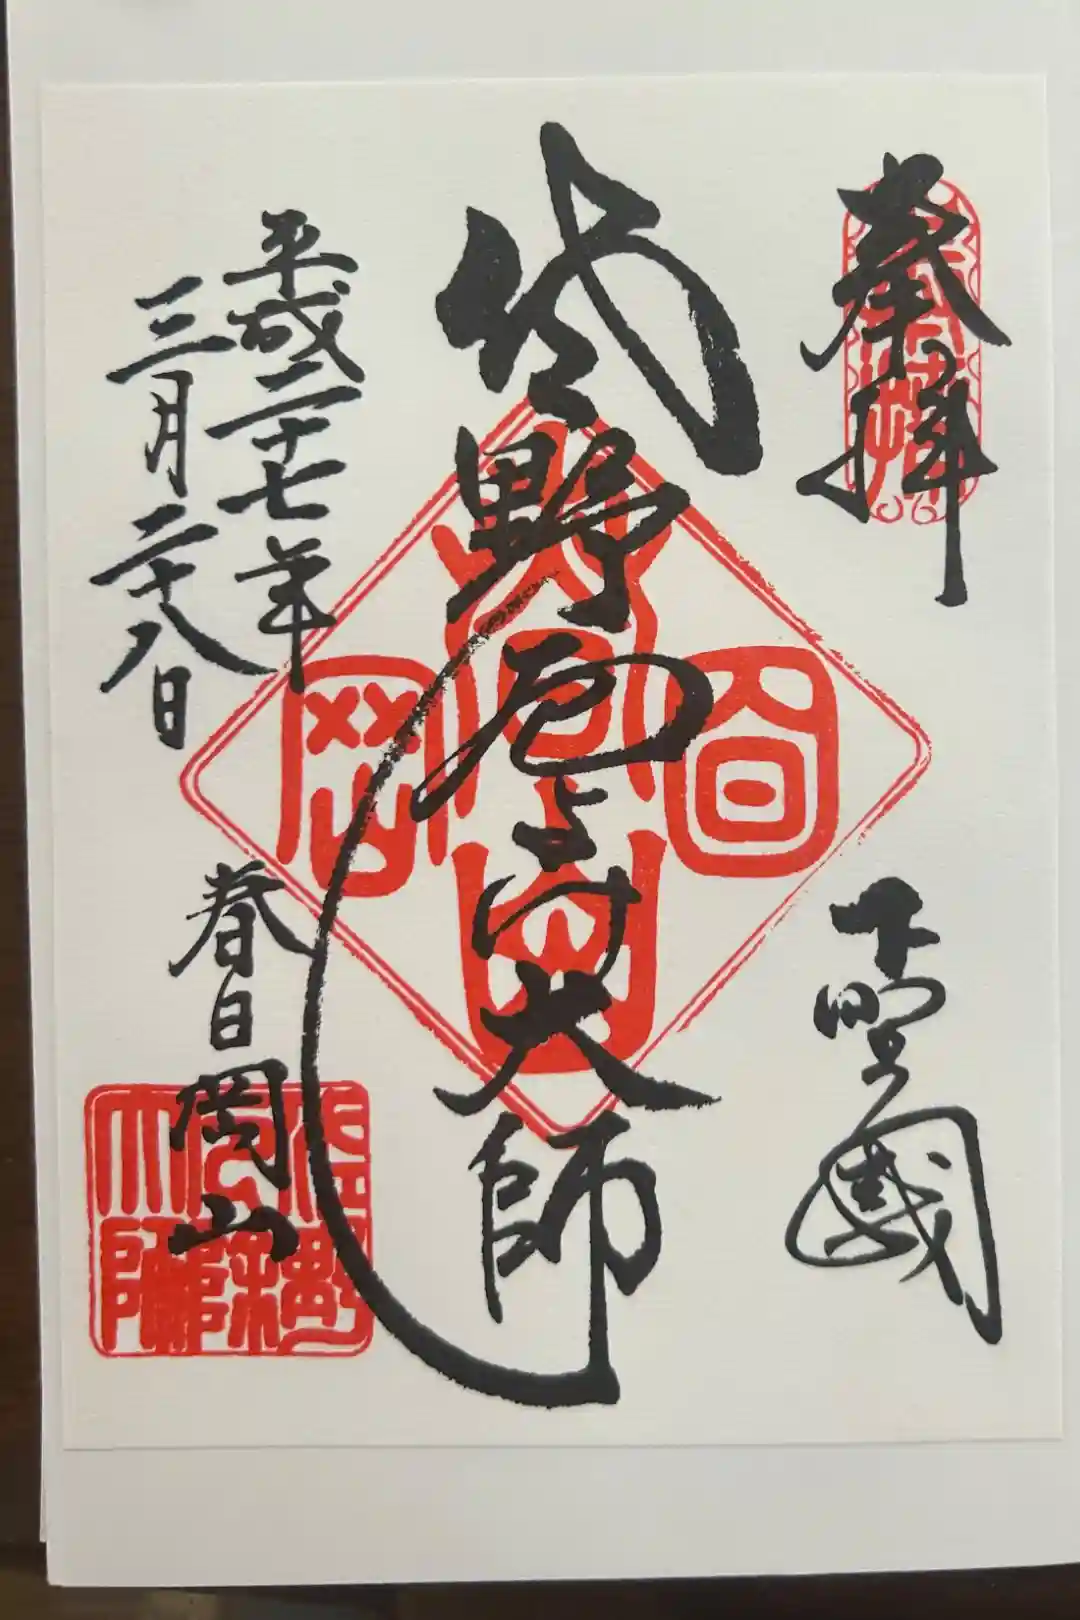 奉拝
下野國
佐野厄よけ大師
平成二十七年
三月二十八日
春日岡山